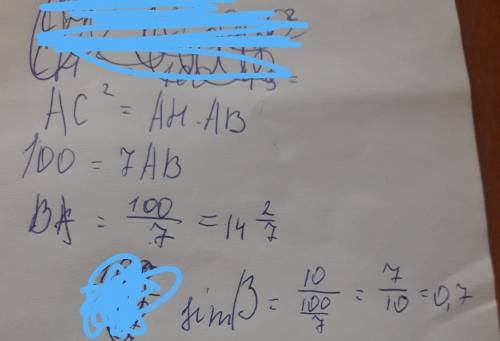 AC² = AH · AB
100 = 7AB
BA = 100/7 = 14 2/7
sin B = 10/(100/7) = 7/10 = 0,7